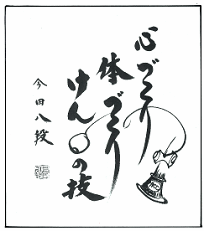 心づくり
体づくり
けん の技
今田八段